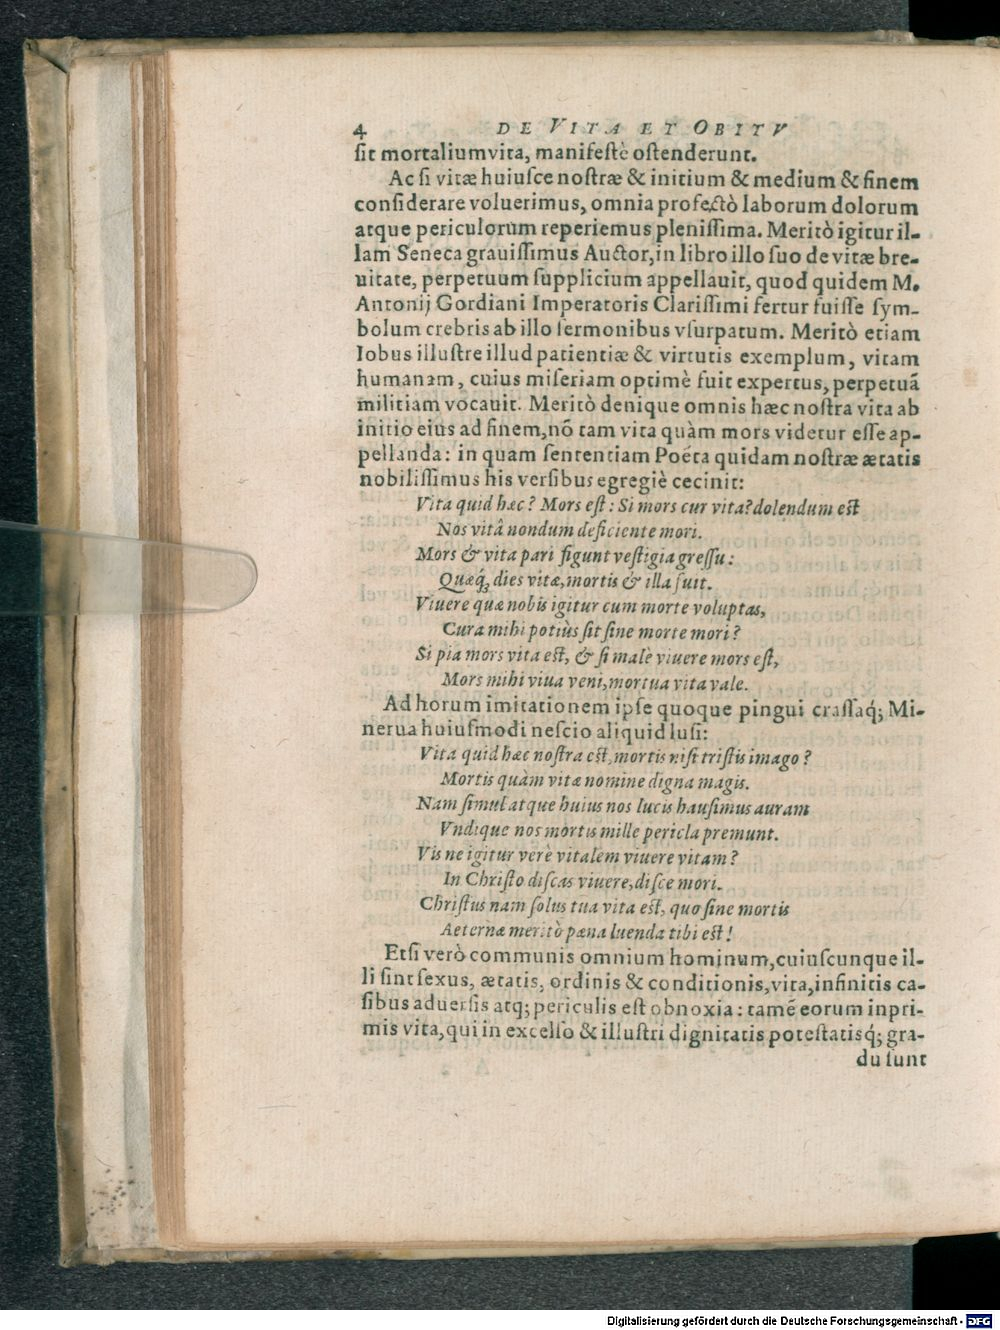 4 DE VITA ET OBITV
ſit mortaliumvita, manifeſtè oſtenderunt.
Ac ſi vitæ huiuſce noſtræ & initium & medium & finem
conſiderare voluerimus, omnia profectò laborum dolorum
atque periculorum reperiemus pleniſſima. Meritò igitur il-
lam Seneca grauiſſimus Auctor, in libro illo ſuo de vitæ bre-
uitate, perpetuum ſupplicium appellauit, quod quidem M.
Antonij Gordiani Imperatoris Clariſſimi fertur fuiſſe ſym-
bolum crebris ab illo ſermonibus vſurpatum. Meritò etiam
Iobus illuſtre illud patientiæ & virtutis exemplum, vitam
humanam, cuius miſeriam optimè fuit expertus, perpetuã
militiam vocauit. Meritò denique omnis hæc noſtra vita ab
initio eius ad finem, nõ tam vita quàm mors videtur eſſe ap-
pellanda: in quam ſententiam Poéta quidam noſtræ ætatis
nobiliſſimus his verſibus egregiè cecinit:
Vita quid hæc? Mors eſt: Si mors cur vita? dolendum eſt
Nos vitâ nondum deficiente mori.
Mors & vita pari figunt veſtigia greſſu:
Quæq́ʒ dies vitæ, mortis & illa fuit.
Viuere quæ nobis igitur cum morte voluptas,
Cura mihi potiùs ſit ſine morte mori?
Si pia mors vita eſt, & ſi malè viuere mors eſt,
Mors mihi viua veni, mortua vita vale.
Ad horum imitationem ipſe quoque pingui craſſaq́; Mi-
nerua huiuſmodi neſcio aliquid luſi:
Vita quid hæc noſtra eſt, mortis niſi triſtis imago?
Mortis quàm vitæ nomine digna magis.
Nam ſimul atque huius nos lucis hauſimus auram
Vndique nos mortis mille pericla premunt.
Vis ne igitur verè vitalem viuere vitam?
In Chriſto diſcas viuere, diſce mori.
Chriſtus nam ſolus tua vita eſt, quo ſine mortis
Aeternæ meritò pæna luenda tibi eſt!
Etſi verò communis omnium hominum, cuiuſcunque il-
li ſint ſexus, ætatis, ordinis & conditionis, vita, infinitis ca-
ſibus aduerſis atq; periculis eſt obnoxia: tamẽ eorum inpri-
mis vita, qui in excelſo & illuſtri dignitatis poteſtatisq́; gra-
du ſunt
Digitalisierung gefördert durch die Deutsche Forschungsgemeinschaft - DFG